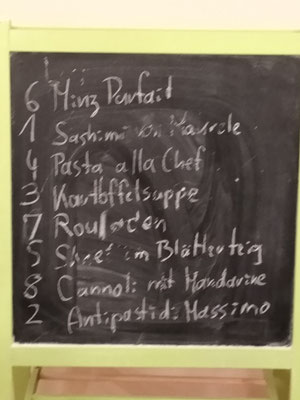 6 Minz Parfait
1 Sashimi von Makrele
4 Pasta alla Chef
3 Kartoffelsuppe
7 Rouladen
5 im Blätterteig
8 Cannoli mit Mandarine
2 Antipasti di Massimo